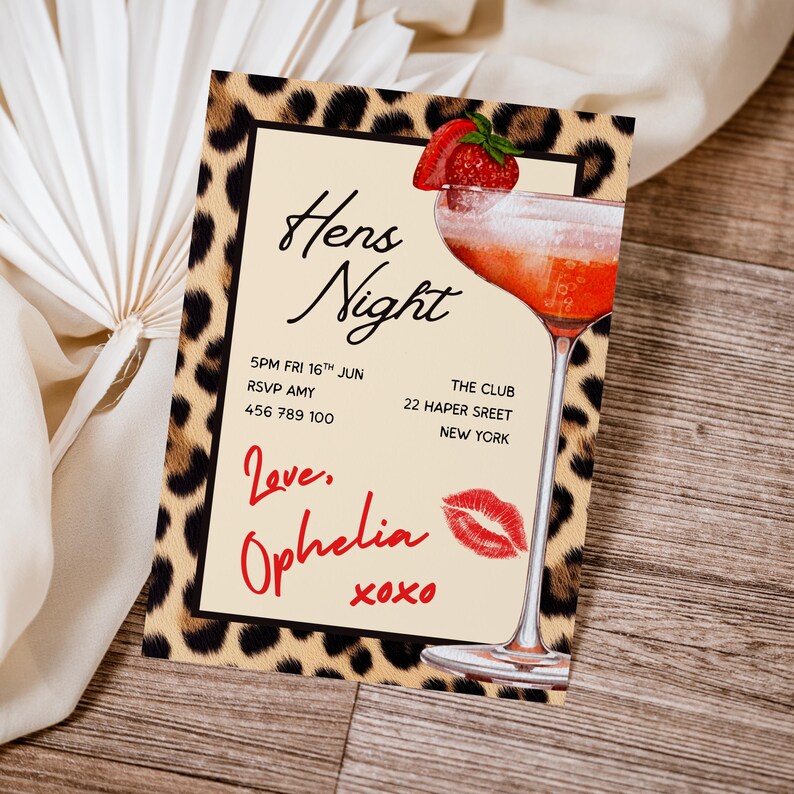 Hens
Night
5PM FRI 16TH JUN
RSVP AMY
456 789 100
THE CLUB
22 HAPER SREET
NEW YORK
Love,
Ophelia
xoxo